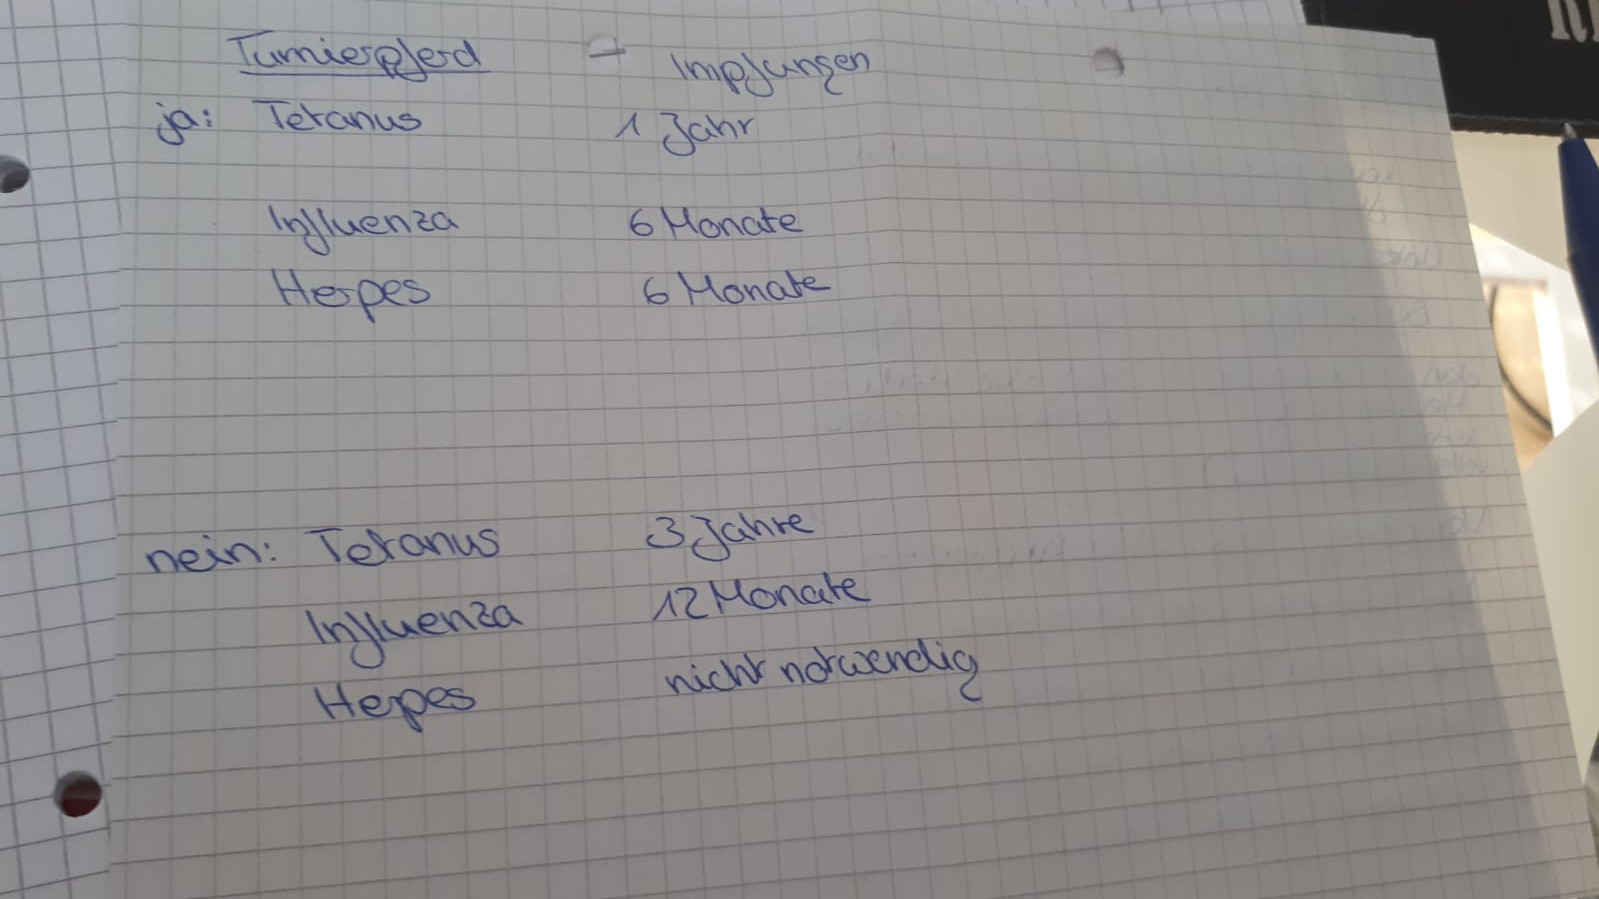 Turnierpferd → Impfungen
ja: Tetanus 1 Jahr
Influenza 6 Monate
Herpes 6 Monate
nein: Tetanus 3 Jahre
Influenza 12 Monate
Herpes nicht notwendig